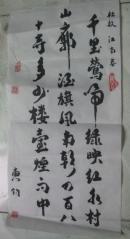 杜牧 江南春
千里鶯啼綠映紅水村
山郭酒旗風南朝四百八
十寺多少樓臺煙雨中